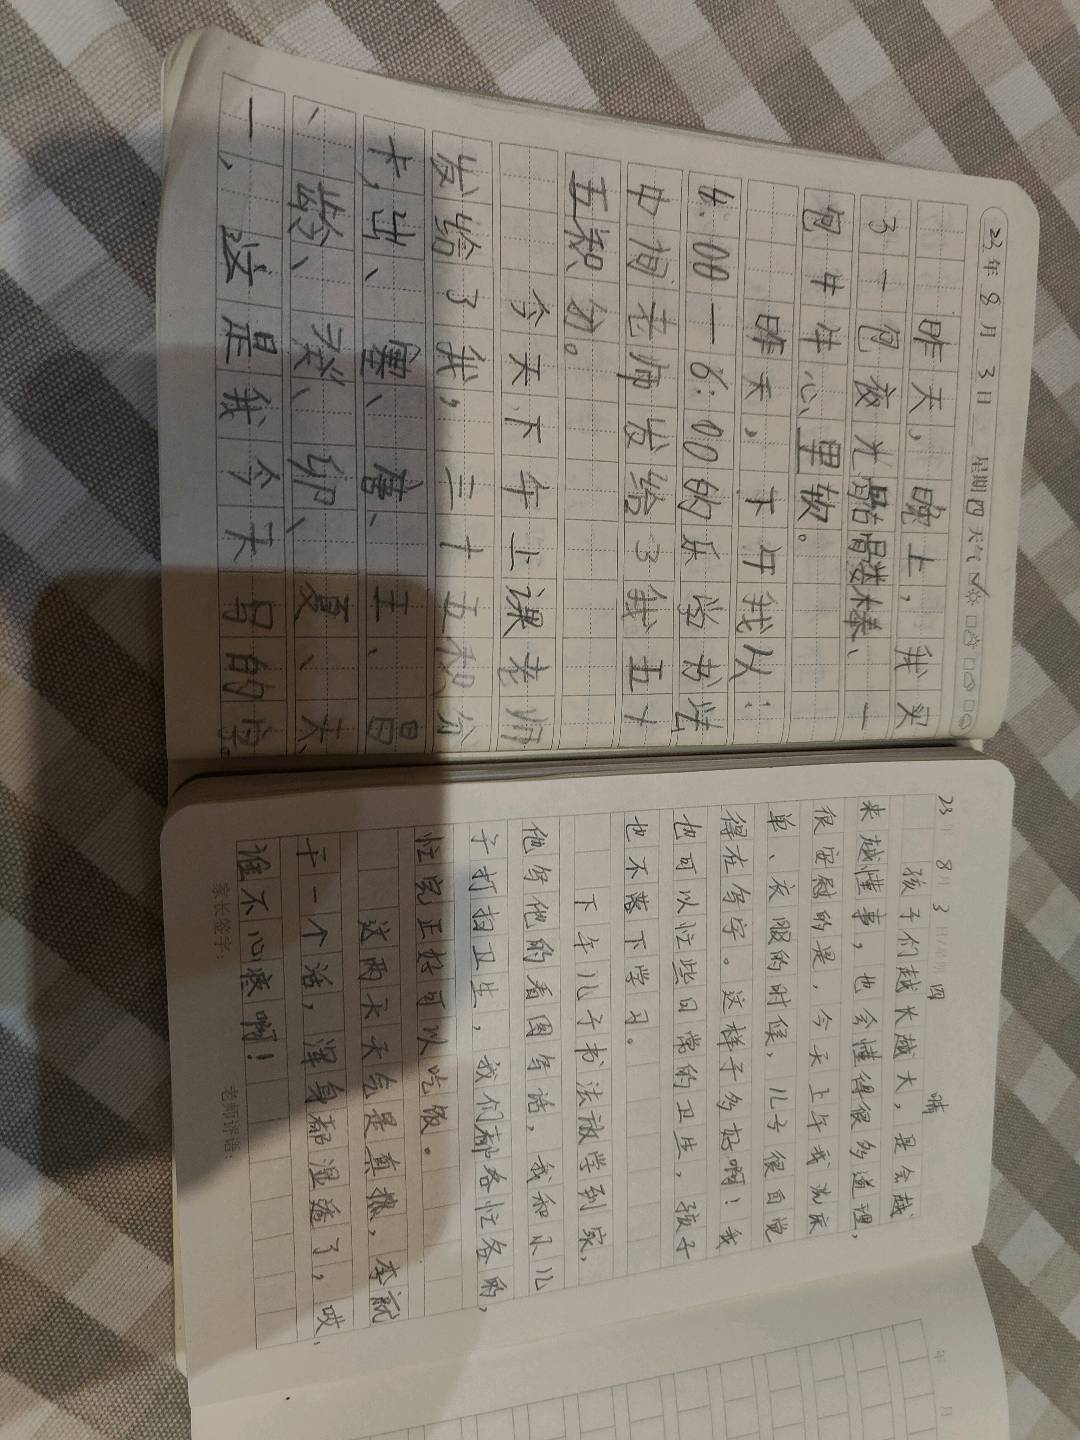 23年8月3日 星期四 天气
昨天,晚上,我买
了一包夜光骷髅棒、一
包牛牛心里软。
昨天,下午我从:
4:00—6:00的乐学书法
中旬老师发给了我五十
五积分。
今天下午上课老师
发给了我,二十五积分
卡,进、寒、唐、王、冒
、龄、癸、卯、夏、大、
一,这是我今天写的字。
23年8月3日/星期四 晴
孩子们越长越大,是会越
来越懂事,也会懂得很多道理,
很安慰的是,今天上午我洗床
单、衣服的时候,儿子很自觉
得在写字。这样子多好啊!我
也可以忙些日常的卫生,孩子
也不落下学习。
下午儿子书法放学到家,
他写他的看图写话,我和小儿
子打扫卫生,我们都各忙各的,
忙完正好可以吃饭。
这两天天气是真热,李航
干一个活,浑身都湿透了,哎,
谁不心疼啊!
家长签字: 老师评语:
年 月